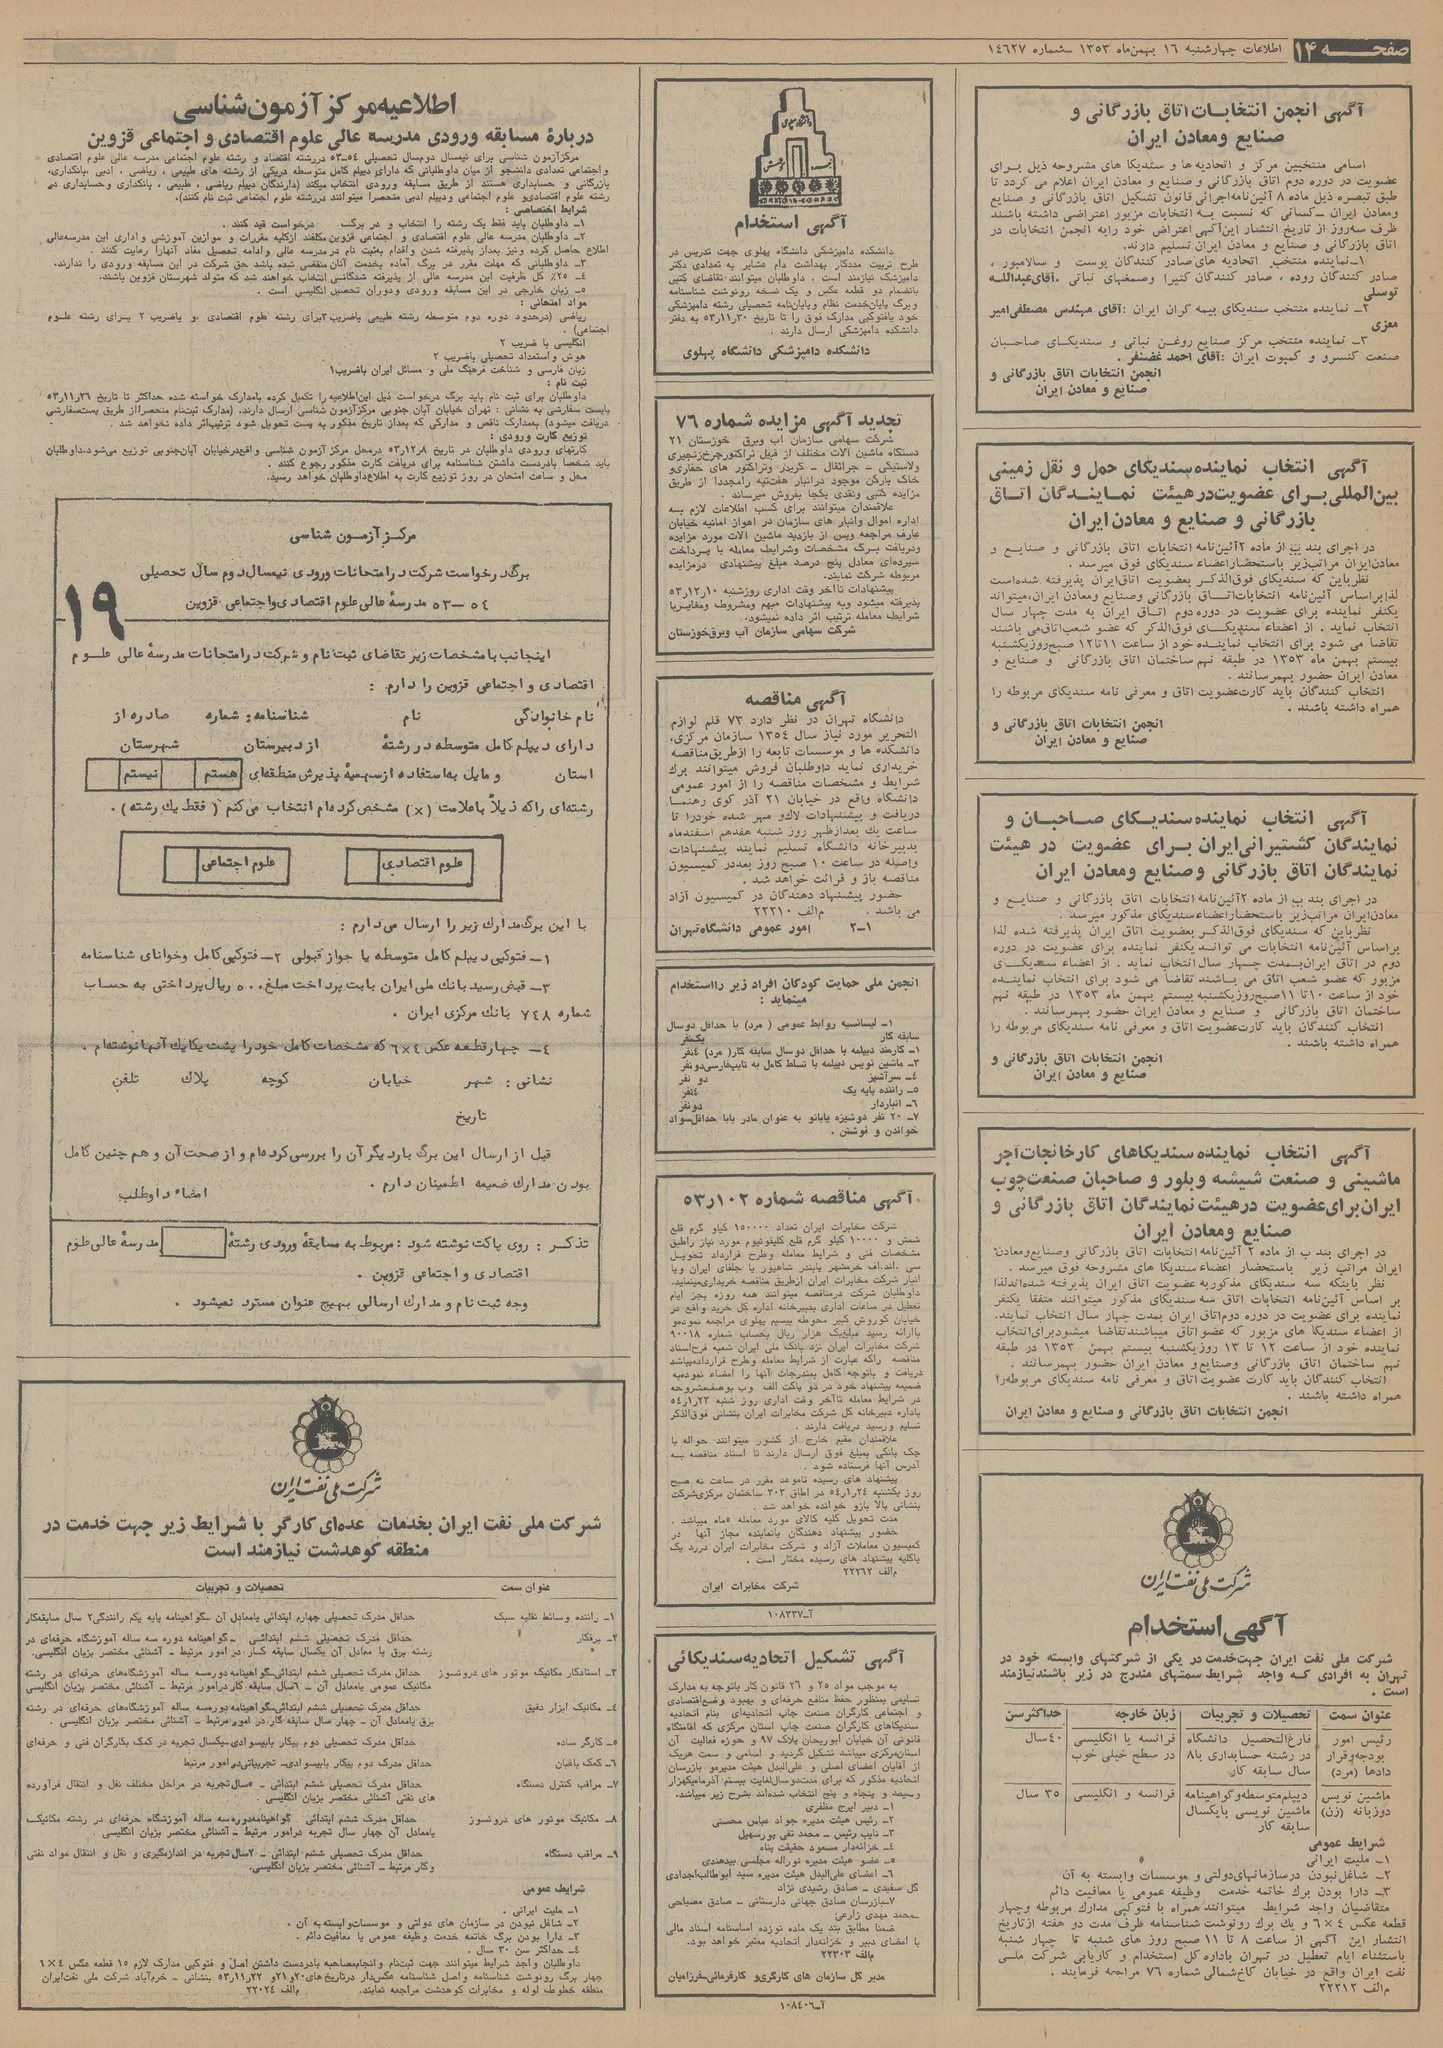 صفحه ۱۴
اطلاعات چهارشنبه ۱۶ بهمن‌ماه ۱۳۵۳ ــ شماره ۱۴۶۲۷
آگهی انجمن انتخابات اتاق بازرگانی و
صنایع ومعادن ایران
اسامی منتخبین مرکز و اتحادیه ها و سندیکا های مشروحه ذیل برای
عضویت در دوره دوم اتاق بازرگانی و صنایع و معادن ایران اعلام می گردد تا
طبق تبصره ذیل ماده ۸ آئین‌نامه اجرائی قانون تشکیل اتاق بازرگانی و صنایع
ومعادن ایران ــ کسانی که نسبت به انتخابات مزبور اعتراضی داشته باشند
ظرف سه‌روز از تاریخ انتشار این‌آگهی اعتراض خود رابه انجمن انتخابات در
اتاق بازرگانی و صنایع و معادن ایران تسلیم دارند.
۱ــ نماینده منتخب اتحادیه های‌صادر کنندگان پوست و سالامبور ،
صادر کنندگان روده ، صادر کنندگان کتیرا وصمغهای نباتی .آقای‌عبداللـه
توسلی
۲ــ نماینده منتخب سندیکای بیمه گران ایران :آقای مهندس مصطفی‌امیر
معزی
۳ــ نماینده منتخب مرکز صنایع روغن نباتی و سندیکای صاحبان
صنعت کنسرو و کمپوت ایران :آقای احمد غضنفر .
انجمن انتخابات اتاق بازرگانی و
صنایع و معادن ایران
آگهی انتخاب نماینده سندیکای حمل و نقل زمینی
بین‌المللی‌برای عضویت‌درهیئت نمایندگان اتاق
بازرگانی و صنایع و معادن ایران
در اجرای بند ب از ماده ۲آئین‌نامه انتخابات اتاق بازرگانی و صنایع و
معادن‌ایران مراتب‌زیر باستحضاراعضاء سندیکای فوق میرسد .
نظرباین که سندیکای فوق‌الذکر بعضویت اتاق‌ایران پذیرفته شده‌است
لذابراساس آئین‌نامه انتخابات‌اتاق بازرگانی وصنایع ومعادن ایران،میتواند
یکنفر نماینده برای عضویت در دوره دوم اتاق ایران به مدت چهار سال
انتخاب نماید . از اعضاء سندیکای فوق‌الذکر که عضو شعب‌اتاق‌می باشند
تقاضا می شود برای انتخاب نماینده خود از ساعت ۱۱تا۱۲ صبح‌روزیکشنبه
بیستم بهمن ماه ۱۳۵۳ در طبقه نهم ساختمان اتاق بازرگانی و صنایع و
معادن ایران حضور بهمرسانند .
انتخاب کنندگان باید کارت‌عضویت اتاق و معرفی نامه سندیکای مربوطه را
همراه داشته باشند .
انجمن انتخابات اتاق بازرگانی و
صنایع و معادن ایران
آگهی انتخاب نماینده سندیکای صاحبان و
نمایندگان کشتیرانی‌ایران برای عضویت در هیئت
نمایندگان اتاق بازرگانی وصنایع ومعادن ایران
در اجرای بند ب از ماده ۲آئین‌نامه انتخابات اتاق بازرگانی و صنایع و
معادن‌ایران مراتب‌زیر باستحضاراعضاء سندیکای مذکور میرسد .
نظرباین که سندیکای فوق‌الذکر بعضویت اتاق ایران پذیرفته شده لذا
براساس آئین‌نامه انتخابات می تواند یکنفر نماینده برای عضویت در دوره
دوم در اتاق ایران‌بمدت چهار سال انتخاب نماید . از اعضاء سندیکای
مزبور که عضو شعب اتاق می باشند تقاضا می شود برای انتخاب نماینده
خود از ساعت ۱۰تا ۱۱صبح‌روزیکشنبه بیستم بهمن ماه ۱۳۵۳ در طبقه نهم
ساختمان اتاق بازرگانی و صنایع و معادن ایران حضور بهمرسانند .
انتخاب کنندگان باید کارت‌عضویت اتاق و معرفی نامه سندیکای مربوطه را
همراه داشته باشند .
انجمن انتخابات اتاق بازرگانی و
صنایع و معادن ایران
آگهی انتخاب نماینده سندیکاهای کارخانجات‌آجر
ماشینی و صنعت شیشه وبلور و صاحبان صنعت‌چوب
ایران‌برای‌عضویت درهیئت نمایندگان اتاق بازرگانی و
صنایع ومعادن ایران
در اجرای بند ب از ماده ۲ آئین‌نامه انتخابات اتاق بازرگانی وصنایع‌ومعادن
ایران مراتب زیر باستحضار اعضاء سندیکا های مشروحه فوق میرسد .
نظر باینکه سه سندیکای مذکور به عضویت اتاق ایران پذیرفته شده‌اندلذا
بر اساس آئین‌نامه انتخابات اتاق سه سندیکای مذکور میتوانند متفقا یکنفر
نماینده برای عضویت در دوره دوم‌اتاق ایران بمدت چهار سال انتخاب نمایند.
از اعضاء سندیکا های مزبور که عضو اتاق میباشند تقاضا میشودبرای‌انتخاب
نماینده خود از ساعت ۱۲ تا ۱۳ روزیکشنبه بیستم بهمن ۱۳۵۳ در طبقه
نهم ساختمان اتاق بازرگانی وصنایع‌و معادن ایران حضور بهمرسانند .
انتخاب کنندگان باید کارت عضویت اتاق و معرفی نامه سندیکای مربوطه‌را
همراه داشته باشند .
انجمن انتخابات اتاق بازرگانی و صنایع و معادن ایران
شرکت ملی نفت ایران
آگهی استخدام
شرکت ملی نفت ایران جهت‌خدمت در یکی از شرکتهای وابسته خود در
تهران به افرادی که واجد شرایط سمتهای مندرج در زیر باشندنیازمند
است .
عنوان سمت تحصیلات و تجربیات زبان خارجه حداکثرسن
رئیس امور فارغ‌التحصیل دانشگاه فرانسه یا انگلیسی ۴۰سال
بودجه‌وقرار در رشته حسابداری با۸ در سطح خیلی خوب
دادها (مرد) سال سابقه کار
ماشین نویس دیپلم‌متوسطه‌وگواهینامه فرانسه و انگلیسی ۳۵ سال
دوزبانه (زن) ماشین نویسی بایکسال
سابقه کار
شرایط عمومی
۱ــ ملیت ایرانی
۲ــ شاغل‌نبودن درسازمانهای‌دولتی و موسسات وابسته به آن
۳ــ دارا بودن برک خاتمه خدمت وظیفه عمومی یا معافیت دائم
متقاضیان واجد شرایط میتوانند همراه با فتوکپی مدارک مربوطه وچهار
قطعه عکس ۴ × ۶ و یک برک رونوشت شناسنامه ظرف مدت دو هفته ازتاریخ
انتشار این آگهی از ساعت ۸ تا ۱۱ صبح روز های شنبه تا چهار شنبه
باستثناء ایام تعطیل در تهران باداره کل استخدام و کاریابی شرکت ملی
نفت ایران واقع در خیابان کاخ‌شمالی شماره ۷۶ مراجعه فرمایند .
م‌الف ۲۲۲۱۲
آگهی استخدام
دانشکده دامپزشکی دانشگاه پهلوی جهت تدریس در
طرح تربیت مددکار بهداشت دام عشایر به تعدادی دکتر
دامپزشک نیازمند است . داوطلبان میتوانند تقاضای کتبی
بانضمام دو قطعه عکس و یک نسخه رونوشت شناسنامه
وبرگ پایان‌خدمت نظام وپایان‌نامه تحصیلی رشته دامپزشکی
خود یافتوکپی مدارک فوق را تا تاریخ ۵۳٫۱۱٫۳۰ به دفتر
دانشکده دامپزشکی ارسال دارند .
دانشکده دامپزشکی دانشگاه پهلوی
تجدید آگهی مزایده شماره ۷۶
شرکت سهامی سازمان آب وبرق خوزستان ۲۱
دستگاه ماشین آلات مختلف از قبیل تراکتورچرخ‌زنجیری
ولاستیکی ــ جراثقال ــ گریدر وتراکتور های حفاری‌و
خاک بارکن موجود درانبار هفت‌تپه رامجددا از طریق
مزایده کتبی ونقدی یکجا بفروش میرساند .
علاقمندان میتوانند برای کسب اطلاعات لازم به
اداره اموال وانبار های سازمان در اهواز امانیه خیابان
عارف مراجعه وپس از بازدید ماشین آلات مورد مزایده
ودریافت برگ مشخصات وشرایط معامله با پرداخت
سپرده‌ای معادل پنج درصد مبلغ پیشنهادی درمزایده
مربوطه شرکت نمایند.
پیشنهادات تاآخر وقت اداری روزشنبه ۵۳٫۱۲٫۱۰
پذیرفته میشود وبه پیشنهادات مبهم ومشروط ومغایربا
شرایط معامله ترتیب اثر داده نمیشود.
شرکت سهامی سازمان آب وبرق‌خوزستان
آگهی مناقصه
دانشگاه تهران در نظر دارد ۷۳ قلم لوازم
التحریر مورد نیاز سال ۱۳۵۴ سازمان مرکزی،
دانشکده ها و موسسات تابعه را ازطریق‌مناقصه
خریداری نماید داوطلبان فروش میتوانند برک
شرایط و مشخصات مناقصه را از امور عمومی
دانشگاه واقع در خیابان ۲۱ آذر کوی رهنما
دریافت و پیشنهادات لاك‌و مهر شده خودرا تا
ساعت یك بعدازظهر روز شنبه هفدهم اسفندماه
بدبیرخانه دانشگاه تسلیم نمایند پیشنهادات
واصله در ساعت ۱۰ صبح روز بعددر کمیسیون
مناقصه باز و قرائت خواهد شد .
حضور پیشنهاد دهندگان در کمیسیون آزاد
می باشد . م‌الف ۲۲۲۱۰
۱ــ۲ امور عمومی دانشگاه‌تهران
انجمن ملی حمایت کودکان افراد زیر رااستخدام
مینماید :
۱ــ لیسانسیه روابط عمومی (مرد) با حداقل دوسال
سابقه کار یکنفر
۱ــ کارمند دیپلمه با حداقل دو سال سابقه کار( مرد) ۴نفر
۳ــ ماشین نویس دیپلمه با تسلط کامل به تایپ‌فارسی‌دو نفر
۴ــ سرآشپز دو نفر
۵ــ راننده پایه یک ۴نفر
۶ــ انباردار دونفر
۷ــ ۲۰ نفر دوشیزه یابانو به عنوان مادر یابا حداقل‌سواد
خواندن و نوشتن .
آگهی مناقصه شماره ۱۰۲ر۵۳
شرکت مخابرات ایران تعداد ۱۵۰۰۰۰ کیلو گرم قلع
شمش و ۱۰۰۰۰ کیلو گرم قلع کلیفونیوم مورد نیاز راطبق
مشخصات فنی و شرایط معامله وطرح قرارداد تحویل
سی .اند.اف خرمشهر یابندر شاهپور یا جلفای ایران ویا
انبار شرکت مخابرات ایران ازطریق مناقصه خریداری‌مینماید.
داوطلبان شرکت درمناقصه میتوانند همه روزه بجز ایام
تعطیل در ساعات اداری بدبیرخانه اداره کل خرید واقع در
خیابان کوروش کبیر محوطه بیسیم پهلوی مراجعه نموده‌و
باارائه رسید مبلغ‌یک هزار ریال بحساب شماره ۹۰۰۱۸
شرکت مخابرات ایران نزد بانک ملی ایران شعبه فرح‌اسناد
مناقصه راکه عبارت از شرایط معامله وطرح قراردادمیباشد
دریافت و باتوجه کامل بمندرجات آنها را امضاء نموده‌به
ضمیمه پیشنهاد خود در دو پاکت الف وب بوصف‌مشروحه
در شرایط معامله تاآخر وقت اداری روز شنبه ۵۴٫۱٫۲۳
باداره دبیرخانه کل شرکت مخابرات ایران بنشانی فوق‌الذکر
تسلیم ورسید دریافت دارند .
علاقمندان مقیم خارج از کشور میتوانند حواله یا
چک بانکی بمبلغ فوق ارسال دارند تا اسناد مناقصه به
آدرس آنها فرستاده شود .
پیشنهاد های رسیده تاموعد مقرر در ساعت نه صبح
روز یکشنبه ۵۴٫۱٫۲۴ در اطاق ۳۰۳ ساختمان مرکزی‌شرکت
بنشانی بالا بازو خوانده خواهد شد .
مدت تحویل کلیه کالای مورد معامله ۵ماه میباشد .
حضور پیشنهاد دهندگان یانماینده مجاز آنها در
کمیسیون معاملات آزاد و شرکت مخابرات ایران دررد یک
یاکلیه پیشنهاد های رسیده مختار است .
م‌الف ۲۲۲۶۲
شرکت مخابرات ایران
آ‌ــ۱۰۸۳۳۷
آگهی تشکیل اتحادیه سندیکائی
به موجب مواد ۲۵ و ۲۶ قانون کار باتوجه به مدارک
تسلیمی بمنظور حفظ منافع حرفه‌ای و بهبود وضع‌اقتصادی
و اجتماعی کارگران صنعت چاپ اتحادیه‌ای بنام اتحادیه
سندیکاهای کارگران صنعت چاپ استان مرکزی که اقامتگاه
قانونی آن خیابان ابوریحان پلاک ۹۷ و حوزه فعالیت آن
استان‌مرکزی میباشد تشکیل گردید و اسامی و سمت هریک
از آقایان اعضای اصلی و علی‌البدل هیئت مدیره‌و بازرسان
اتحادیه مذکور که برای مدت‌دوسال‌لغایت بیستم آذرماه‌یکهزار
وسیصد و پنجاه و پنج انتخاب شده‌اند بشرح زیر میباشد.
۱ــ دبیر ایرج مظفری
۲ــ رئیس هیئت مدیره جواد عباس محسنی
۳ــ نایب رئیس ــ محمد نقی پورسهیل
۴ــ خزانه‌دار مسعود حقیقت پناه
۵ــ عضو هیئت مدیره نوراله مجلسی بیدهندی
۶ــ اعضای علی‌البدل هیئت مدیره سید ابوطالب‌اجدادی
گل سفیدی ــ صادق رشیدی نژاد
۷ــبازرسان صادق جهانی دارستانی ــ صادق مصباحی
ــمحمد مهدی زارعی:
ضمنا مطابق بند یک ماده نوزده اساسنامه اسناد مالی
با امضای دبیر و خزانه‌دار اتحادیه معتبر خواهد بود.
م‌الف ۲۲۳۰۳
مدیر کل سازمان های کارگری‌و کارفرمائی‌ــفرزامیان
آ‌ــ۱۰۸۴۰۶
اطلاعیه‌مرکز آزمون‌شناسی
دربارهٔ مسابقه ورودی مدرسه عالی علوم اقتصادی و اجتماعی قزوین
مرکزآزمون شناسی برای نیمسال دوم‌سال تحصیلی ۵۴ــ۵۳ دررشته اقتصاد و رشته علوم اجتماعی مدرسه عالی علوم اقتصادی
واجتماعی تعدادی دانشجو از میان داوطلبانی که دارای دیپلم کامل متوسطه دریکی از رشته های طبیعی ، ریاضی ، ادبی ،بانکداری،
بازرگانی و حسابداری هستند از طریق مسابقه ورودی انتخاب میکند (دارندگان دیپلم ریاضی ، طبیعی ، بانکداری وحسابداری در
رشته علوم اقتصادی‌و علوم اجتماعی ودیپلم ادبی منحصرا میتوانند دررشته علوم اجتماعی ثبت نام کنند).
شرایط اختصاصی :
۱ــ داوطلبان باید فقط یک رشته را انتخاب و در برگ درخواست قید کنند .
۲ــ داوطلبان مدرسه عالی علوم اقتصادی و اجتماعی قزوین مکلفند ازکلیه مقررات و موازین آموزشی و اداری این مدرسه‌عالی
اطلاع حاصل کرده و نیز بعداز پذیرفته شدن واقدام به‌ثبت نام در مدرسه عالی وادامه تحصیل مفاد آنهارا رعایت کنند
۳ــ داوطلبانی که مهلت مقرر در برگ آماده بخدمت آنان منقضی شده باشد حق شرکت در این مسابقه ورودی را ندارند.
۴ــ ۲۵٪ کل ظرفیت این مدرسه عالی از پذیرفته شدگانی انتخاب خواهند شد که متولد شهرستان قزوین باشند.
۵ــ زبان خارجی در این مسابقه ورودی ودوران تحصیل انگلیسی است .
مواد امتحانی :
ریاضی (درحدود دوره دوم متوسطه رشته طبیعی باضریب ۳برای رشته علوم اقتصادی .و باضریب ۲ برای رشته علوم
اجتماعی) .
انگلیسی با ضریب ۲
هوش واستعداد تحصیلی باضریب ۲
زبان فارسی و شناخت فرهنگ ملی و مسائل ایران باضریب۱
ثبت نام :
داوطلبان برای ثبت نام باید برگ درخواست ذیل این‌اطلاعیه را تکمیل کرده بامدارک خواسته شده حداکثر تا تاریخ ۵۳٫۱۱٫۲۶
باپست سفارشی به نشانی : تهران خیابان آبان جنوبی مرکزآزمون شناسی ارسال دارند. (مدارک ثبت‌نام منحصرااز طریق پست‌سفارشی
دریافت میشود) به‌مدارک ناقص و مدارکی که بعداز تاریخ مذکور به پست تحویل شود ترتیب‌اثر داده نخواهد شد .
توزیع کارت ورودی :
کارتهای ورودی داوطلبان در تاریخ ۵۳٫۱۲٫۸ درمحل مرکز آزمون شناسی واقع‌درخیابان آبان‌جنوبی توزیع می‌شود.داوطلبان
باید شخصا بادردست داشتن شناسنامه برای دریافت کارت مذکور رجوع کنند .
محل و ساعت امتحان در روز توزیع کارت به اطلاع‌داوطلبان خواهد رسید.
مرکز آزمون شناسی
برگ درخواست شرکت در امتحانات ورودی نیمسال دوم سال تحصیلی
۵۴ ــ ۵۳ مدرسهٔ عالی علوم اقتصادی و اجتماعی قزوین
۱۹
اینجانب با مشخصات زیر تقاضای ثبت نام و شرکت در امتحانات مدرسهٔ عالی علوم
اقتصادی و اجتماعی قزوین را دارم :
نام خانوادگی نام شناسنامه: شماره صادره از
دارای دیپلم کامل متوسطه در رشتهٔ از دبیرستان شهرستان
استان و مایل به استفاده از سهمیهٔ پذیرش منطقه‌ای هستم نیستم
رشته‌ای را که ذیلاً با علامت (×) مشخص کرده‌ام انتخاب می‌کنم ( فقط یك رشته) .
علوم اقتصادی علوم اجتماعی
با این برگ مدارك زیر را ارسال می‌دارم :
۱ــ فتوکپی دیپلم کامل متوسطه یا جواز قبولی ۲ــ فتوکپی کامل و خوانای شناسنامه
۳ــ قبض رسید بانك ملی ایران بابت پرداخت مبلغ ۵۰۰ ریال پرداختی به حساب
شماره ۷۴۸ بانك مرکزی ایران .
۴ــ چهار قطعه عکس ۴×۶ که مشخصات کامل خود را پشت یکایك آنها نوشته‌ام .
نشانی : شهر خیابان کوچه پلاك تلفن
تاریخ
قبل از ارسال این برگ بار دیگر آن را بررسی کرده‌ام و از صحت آن و هم چنین کامل
بودن مدارك ضمیمه اطمینان دارم .
امضاء داوطلب
تذکر : روی پاکت نوشته شود : مربوط به مسابقهٔ ورودی رشتهٔ مدرسهٔ عالی علوم
اقتصادی و اجتماعی قزوین .
وجه ثبت نام و مدارك ارسالی بهیچ عنوان مسترد نمیشود .
شرکت ملی نفت ایران
شرکت ملی نفت ایران بخدمات عده‌ای کارگر با شرایط زیر جهت خدمت در
منطقه کوهدشت نیازمند است
عنوان سمت تحصیلات و تجربیات
۱ــ راننده وسائط نقلیه سبک حداقل مدرک تحصیلی چهارم ابتدائی یامعادل آن ــ گواهینامه پایه یکم رانندگی۲ سال سابقه‌کار
۲ــ برقکار حداقل مدرک تحصیلی ششم ابتدائی ــ گواهینامه دوره سه ساله آموزشگاه حرفه‌ای در
رشته برق یا معادل آن یکسال سابقه کار در امور مرتبط ــ آشنائی مختصر بزبان انگلیسی.
۳ــ استادکار مکانیک موتور های درونسوز حداقل مدرک تحصیلی ششم ابتدائی‌ــگواهینامه دوره‌سه ساله آموزشگاههای حرفه‌ای در رشته
مکانیک عمومی یامعادل آن ــ ۶سال سابقه کار درامور مرتبط ــ آشنائی مختصر بزبان انگلیسی
۴ــ مکانیک ابزار دقیق حداقل مدرک تحصیلی ششم ابتدائی‌ــگواهینامه دوره سه ساله آموزشگاههای حرفه‌ای در رشته
برق یامعادل آن ــ چهار سال سابقه کار در امور مرتبط ــ آشنائی مختصر بزبان انگلیسی .
۵ــ کارگر ساده حداقل مدرک تحصیلی دوم پیکار بابیسوادی‌ــیکسال تجربه در کمک بکارگران فنی و حرفه‌ای
۶ــ کمک باغبان حداقل مدرک دوم پیکار بابیسوادی‌ــ تجربیاتی‌در امور مرتبط
۷ــ مراقب کنترل دستگاه حداقل مدرک تحصیلی ششم ابتدائی ــ ۵سال تجربه در مراحل مختلف نقل و انتقال فرآورده
های نفتی آشنائی مختصر بزبان انگلیسی .
۸ــ مکانیک موتور های درونسوز حداقل مدرک ششم ابتدائی گواهینامه‌دوره سه ساله آموزشگاه حرفه‌ای در رشته مکانیک
یامعادل آن چهار سال تجربه درامور مرتبط ــ آشنائی مختصر بزبان انگلیسی .
۹ــ مراقب دستگاه حداقل مدرک تحصیلی ششم ابتدائی ــ ۲سال تجربه در اندازه‌گیری و نقل و انتقال مواد نفتی
وکار مرتبط ــ آشنائی مختصر بزبان انگلیسی.
شرایط عمومی
۱ــ ملیت ایرانی .
۲ــ شاغل نبودن در سازمان های دولتی و موسسات‌وابسته به آن .
۳ــ دارا بودن برگ خاتمه خدمت وظیفه عمومی یا معافیت دائم .
۴ــ حداکثر سن ۳۰ سال .
داوطلبان واجد شرایط میتوانند جهت ثبت‌نام وانجام‌مصاحبه بادردست داشتن اصل و فتوکپی مدارک لازم ۱۵ قطعه عکس ۴×۶
چهار برگ رونوشت شناسنامه واصل شناسنامه عکس‌دار درتاریخ های۲۰و۲۱و ۵۳٫۱۱٫۲۲ بنشانی ــ خرم‌آباد شرکت ملی نفت‌ایران
منطقه خطوط لوله و مخابرات کوهدشت مراجعه نمایند. م‌الف ۲۲۰۲۴